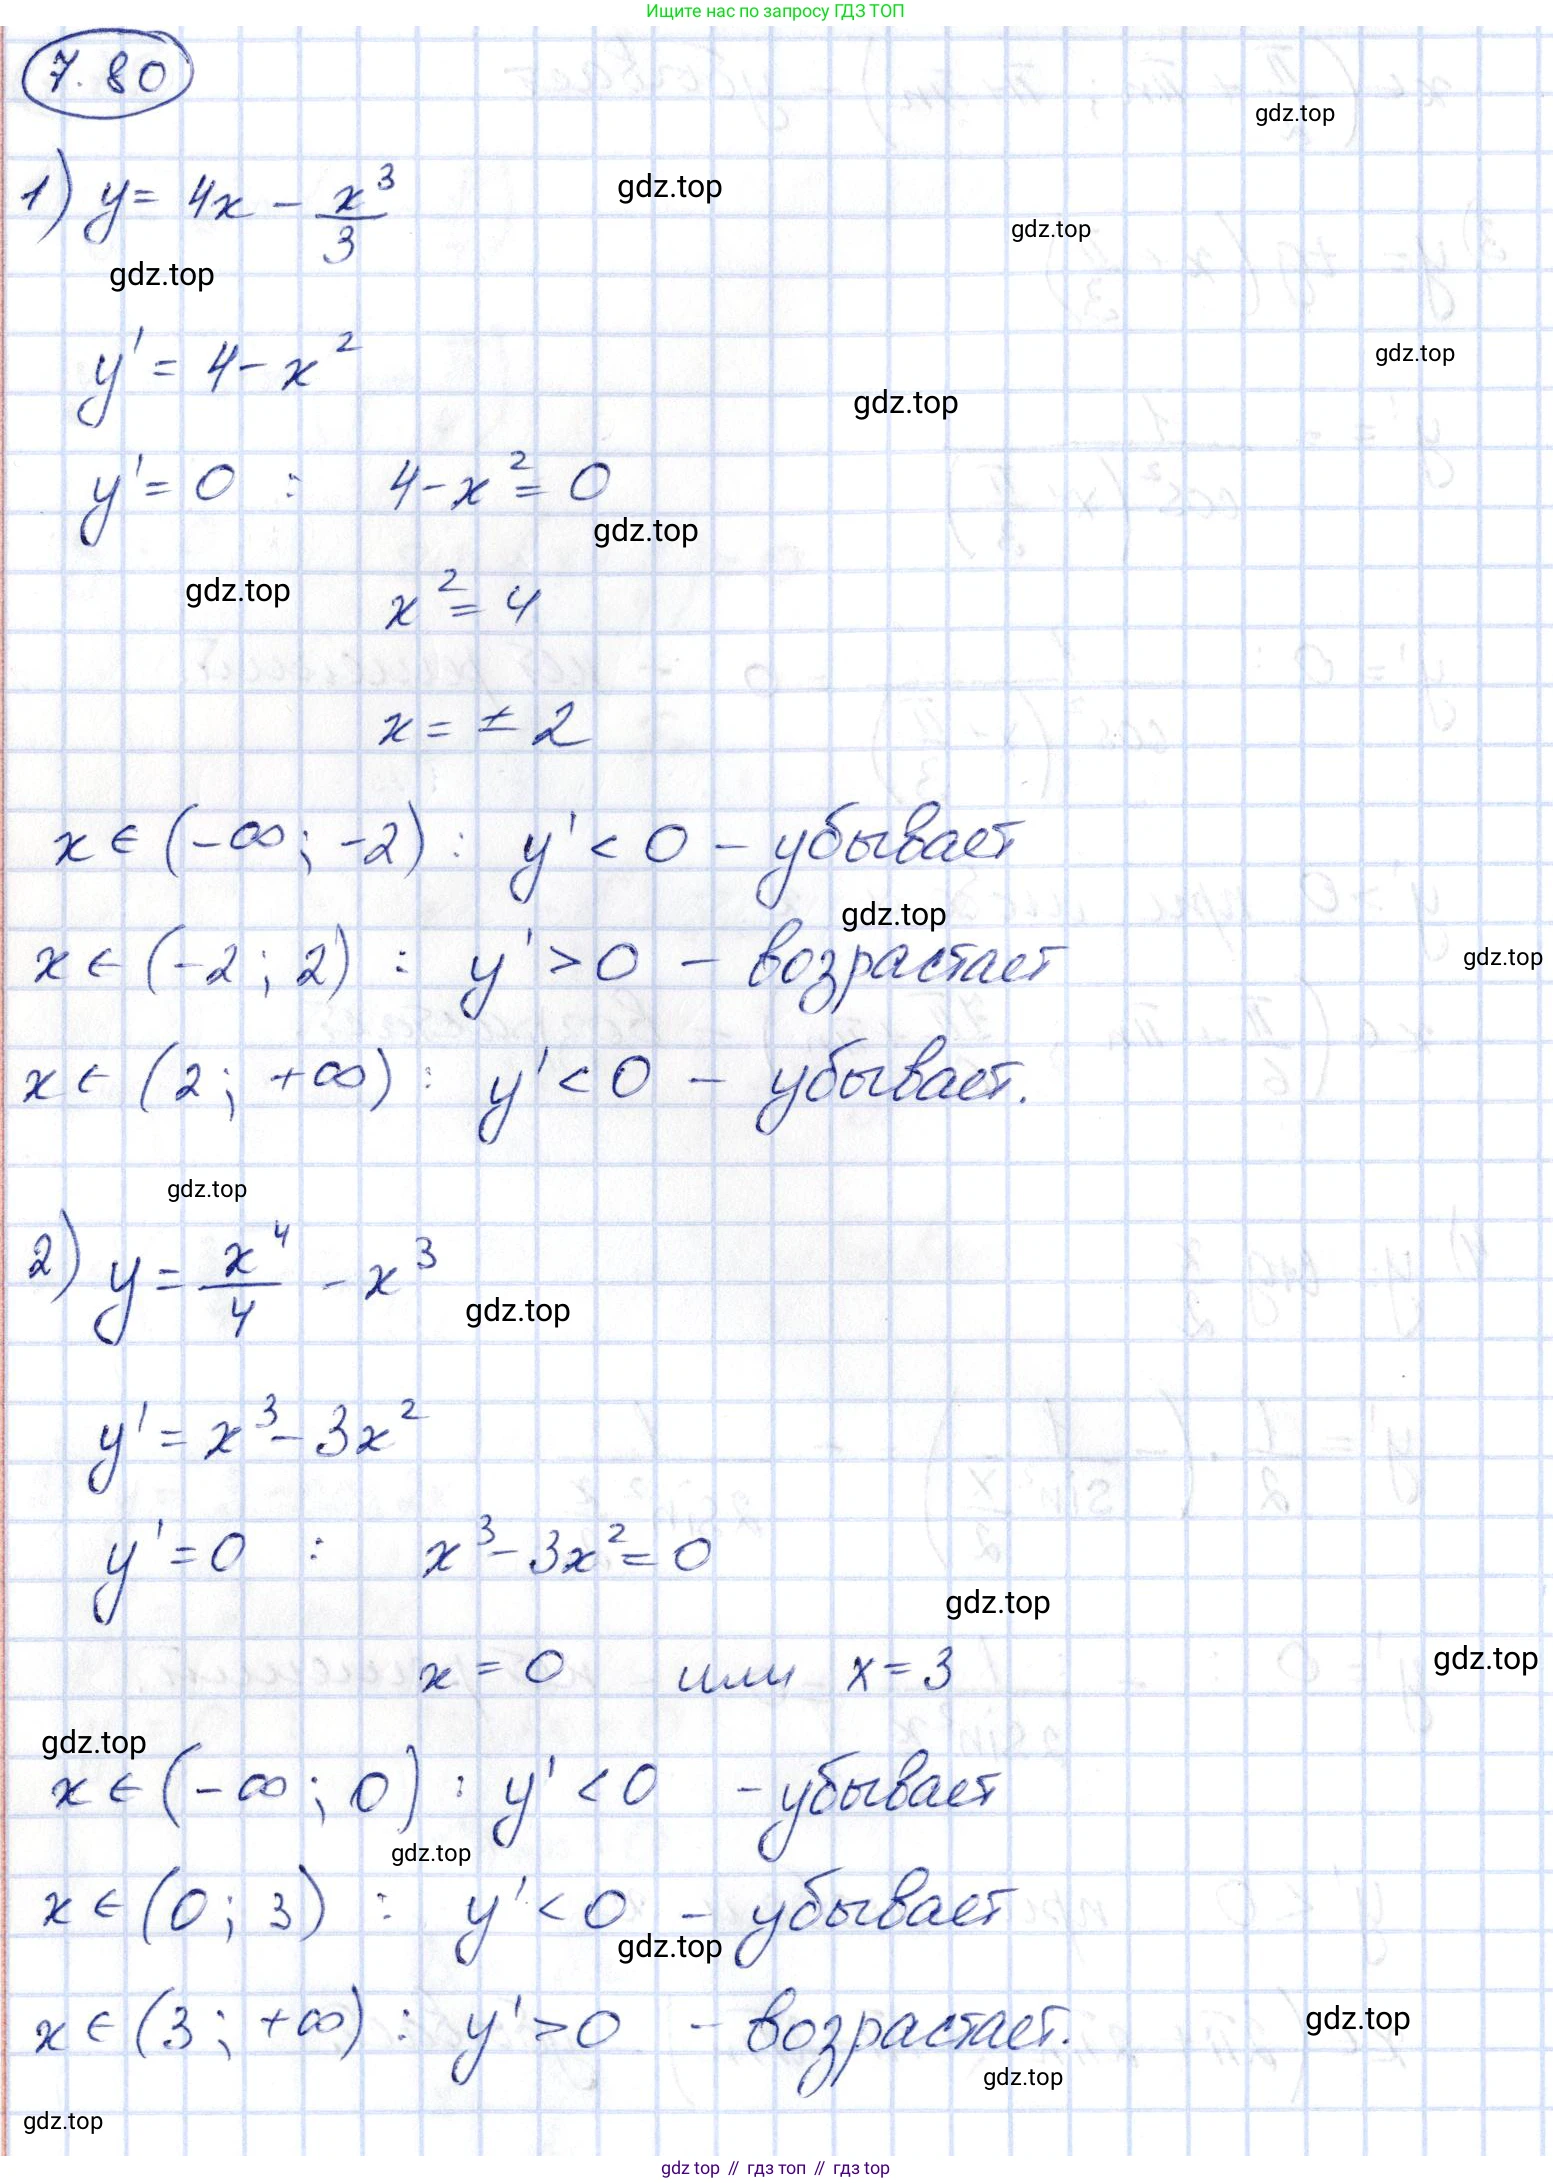 Ищите нас по запросу ГДЗ ТОП
7.80
gdz.top
1) y = 4x - x³/3
gdz.top
gdz.top
gdz.top
y' = 4 - x²
gdz.top
gdz.top
y' = 0 : 4 - x² = 0
gdz.top
gdz.top
x² = 4
x = ± 2
x ∈ (-∞; -2) : y' < 0 - убывает
gdz.top
x ∈ (-2; 2) : y' > 0 - возрастает
gdz.top
x ∈ (2; +∞) : y' < 0 - убывает.
gdz.top
2) y = x⁴/4 - x³
gdz.top
y' = x³ - 3x²
y' = 0 : x³ - 3x² = 0
gdz.top
x = 0 или x = 3
gdz.top
gdz.top
x ∈ (-∞; 0) : y' < 0 - убывает
gdz.top
x ∈ (0; 3) : y' < 0 - убывает
gdz.top
x ∈ (3; +∞) : y' > 0 - возрастает.
gdz.top
gdz.top
gdz.top
gdz top // гдз топ // гдз top